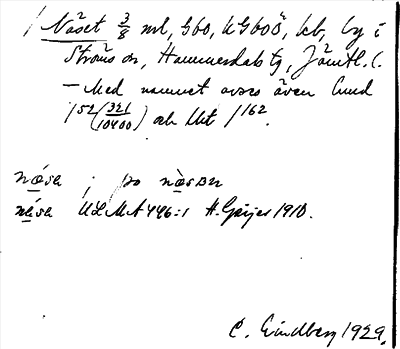 1 Näset 3/8 mtl, Gbo, kGboö, kb, by i
Ströms sn, Hammerdals tg, Jämtl. l.
– Med namnet avses även Lund
1 52 (321/10400) och Ut 1 162.
næsa ; po næsɒn
nésa ULMA 446:1 H. Geijer 1910.
C. Lindberg 1929.